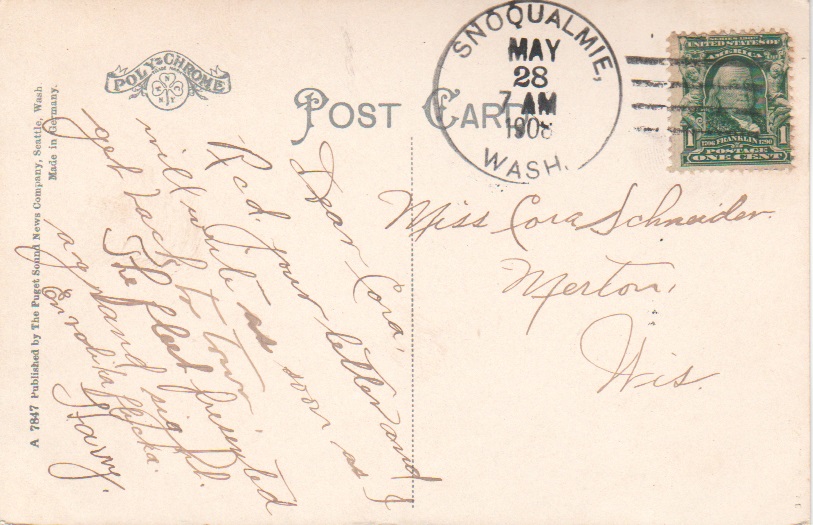 POLY-CHROME
POST CARD
SNOQUALMIE,
MAY
28
7 AM
1908
WASH.
SERIES 1902
UNITED STATES OF
AMERICA
1 1706 FRANKLIN 1790 1
POSTAGE
ONE CENT
A 7847 Published by The Puget Sound News Company, Seattle, Wash
Made in Germany.
Dear Cora,
Rcd. your letter and
will write as soon as I
get back to town.
The fleet presented
a grand sight.
En rolika flicka.
Harry.
Miss Cora Schneider.
Merton,
Wis.